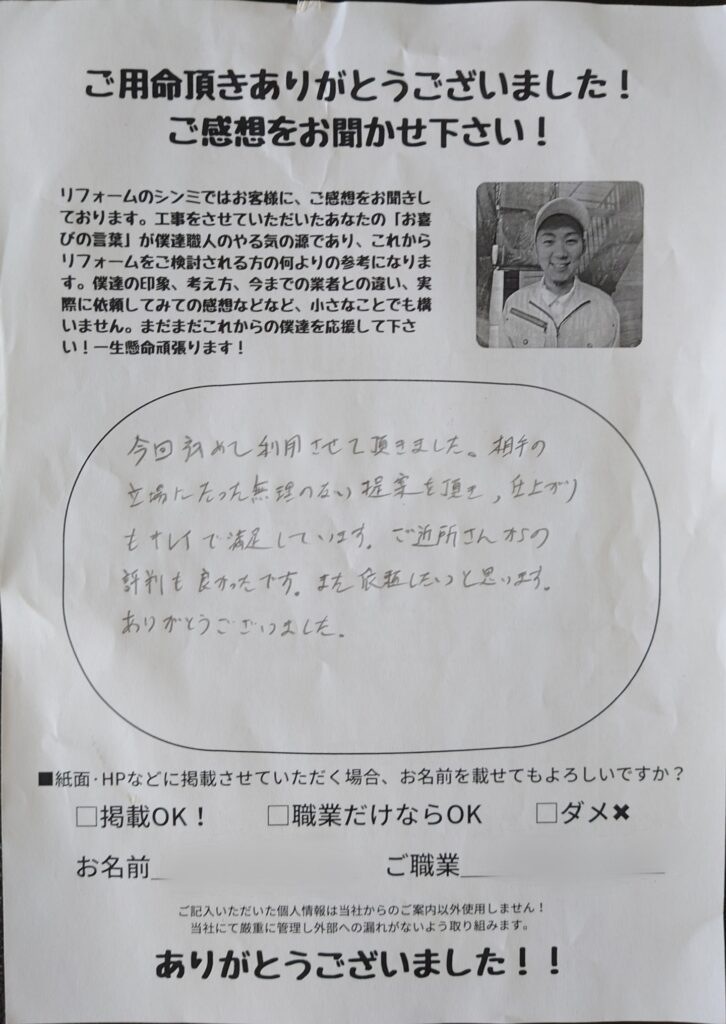 ご用命頂きありがとうございました！
ご感想をお聞かせ下さい！
リフォームのシンミではお客様に、ご感想をお聞きし
ております。工事をさせていただいたあなたの「お喜
びの言葉」が僕達職人のやる気の源であり、これから
リフォームをご検討される方の何よりの参考になりま
す。僕達の印象、考え方、今までの業者との違い、実
際に依頼してみての感想などなど、小さなことでも構
いません。まだまだこれからの僕達を応援して下さ
い！一生懸命頑張ります！
今回初めて利用させて頂きました。相手の
立場にたった無理のない提案を頂き、仕上がり
もキレイで満足しています。ご近所さんからの
評判も良かったです。また依頼したいと思います。
ありがとうございました。
■紙面･HPなどに掲載させていただく場合、お名前を載せてもよろしいですか？
□掲載OK！ □職業だけならOK □ダメ✖
お名前 ご職業
ご記入いただいた個人情報は当社からのご案内以外使用しません！
当社にて厳重に管理し外部への漏れがないよう取り組みます。
ありがとうございました！！